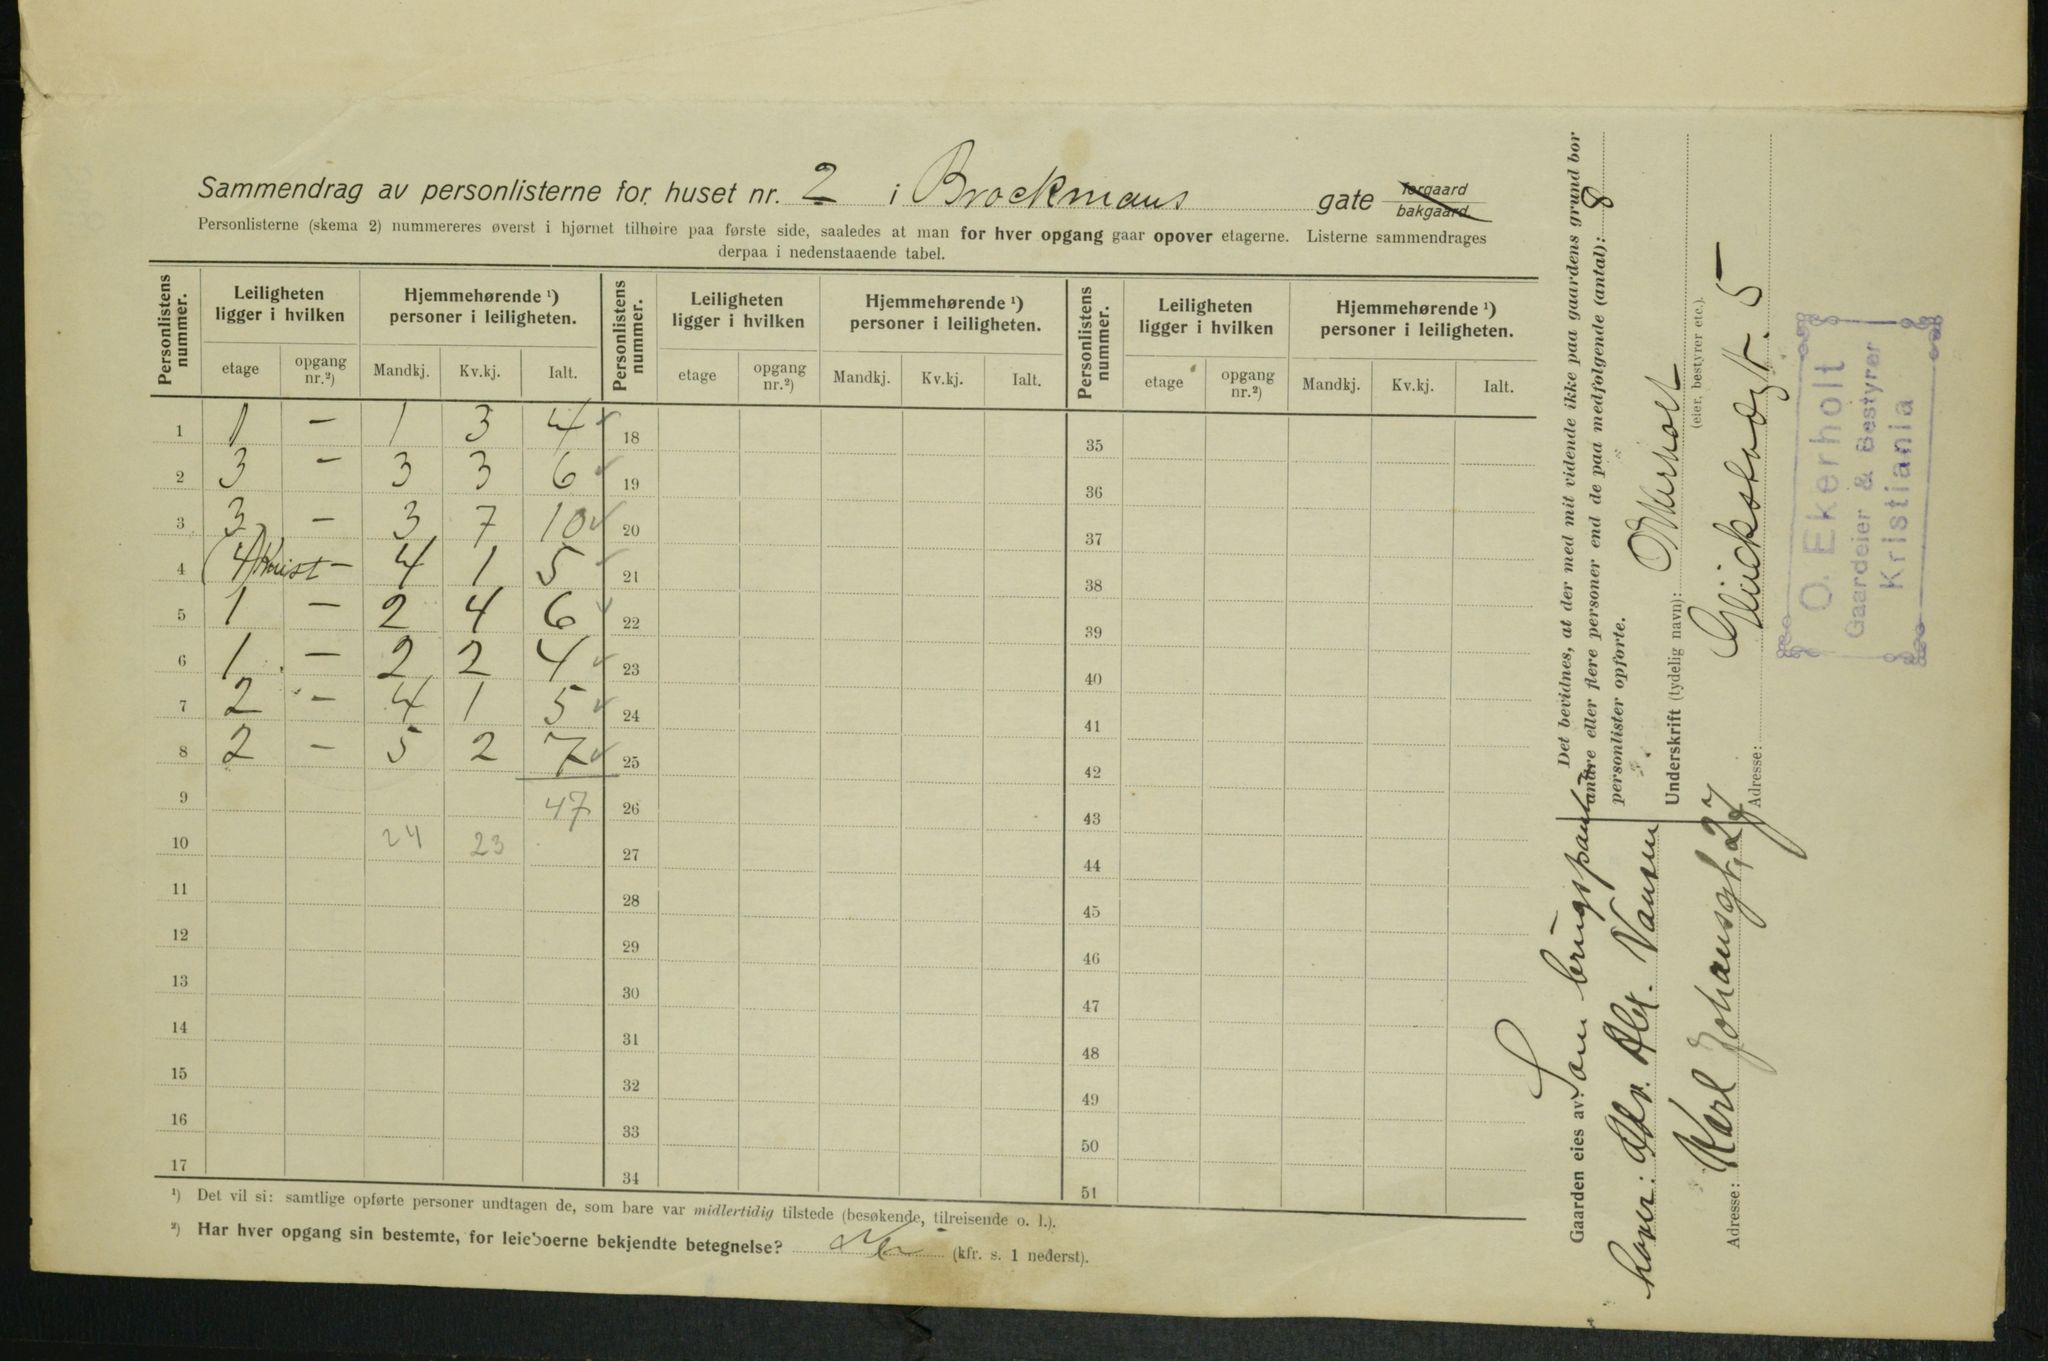 Sammendrag av personlisterne for huset nr. 2 i Brockmans gate forgaard bakgaard
Personlisterne (skema 2) nummereres øverst i hjørnet tilhøire paa første side, saaledes at man for hver opgang gaar opover etagerne. Listerne sammendrages
derpaa i nedenstaaende tabel.
Personlistens nummer. Leiligheten ligger i hvilken Hjemmehørende ¹) personer i leiligheten. Personlistens nummer. Leiligheten ligger i hvilken Hjemmehørende ¹) personer i leiligheten. Personlistens nummer. Leiligheten ligger i hvilken Hjemmehørende ¹) personer i leiligheten.
etage opgang nr.²) Mandkj. Kv.kj. Ialt. etage opgang nr.²) Mandkj. Kv.kj. Ialt. etage opgang nr.²) Mandkj. Kv.kj. Ialt.
1 1 — 1 3 4 18 35
2 3 — 3 3 6 19 36
3 3 — 3 7 10 20 37
4 (4) Kvist — 4 1 5 21 38
5 1 — 2 4 6 22 39
6 1 — 2 2 4 23 40
7 2 — 4 1 5 24 41
8 2 — 5 2 7 25 42
9 47 26 43
10 24 23 27 44
11 28 45
12 29 46
13 30 47
14 31 48
15 32 49
16 33 50
17 34 51
¹) Det vil si: samtlige opførte personer undtagen de, som bare var midlertidig tilstede (besøkende, tilreisende o. l.).
²) Har hver opgang sin bestemte, for leieboerne bekjendte betegnelse? Nei (kfr. s. 1 nederst).
Det bevidnes, at der med mit vidende ikke paa gaardens grund bor
andre eller flere personer end de paa medfølgende (antal): 8
personlister opførte.
Underskrift (tydelig navn): O Ekerholt
(eier, bestyrer etc.).
Adresse: Glückstadgt. 5
Gaarden eies av:
Adv. Alex. Nansen
Adresse: Karl Johansgt. 27
O. Ekerholt
Gaardeier & Bestyrer
Kristiania